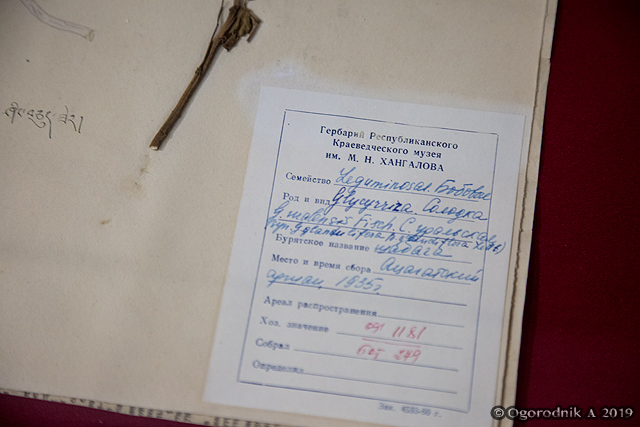 Гербарий Республиканского
Краеведческого музея
им. М. Н. ХАНГАЛОВА
Семейство Leguminosae. Бобовые
Род и вид Glycyrriza. Солодка
G. uralensis Fisch. С. уральская
glandulifera
Бурятское название
Место и время сбора Ацагатский
аршан, 1935г.
Ареал распространения
Хоз. значение оф 1181
Собрал бот 279
Определил
© Ogorodnik A 2019